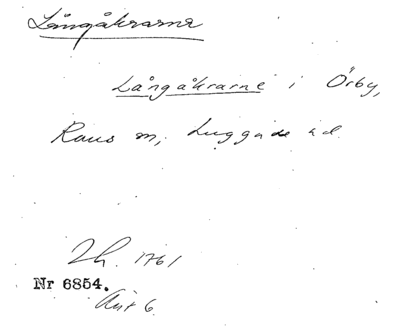 Långåkrarne
Långåkrarne i Örby,
Raus sn, Luggude hd.
Lh. 1761
Nr 6854.
Akt 6